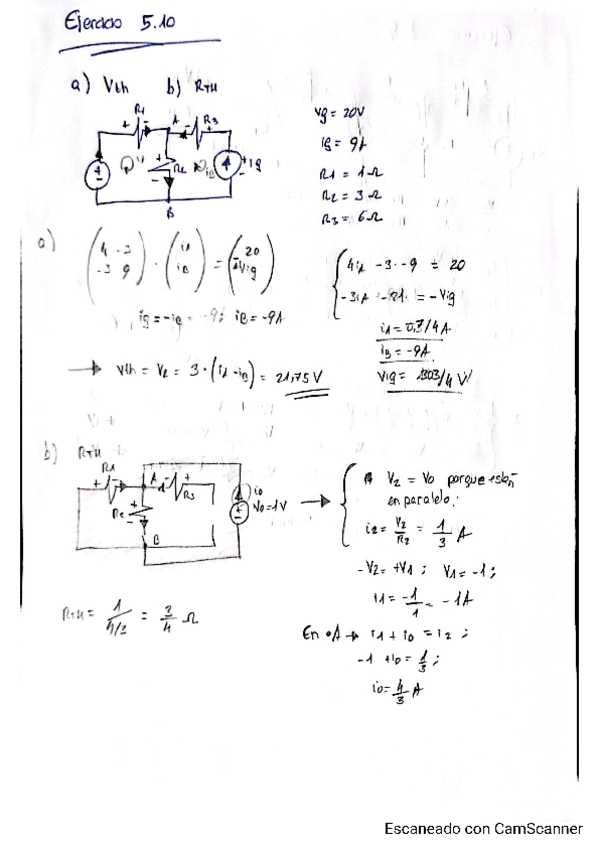 Ejercicio 5.10
a) Vth b) RTH
R1 A R3
+ - - +
+ R2 ig
-
B
Vg = 20V
ig = 9A
R1 = 1Ω
R2 = 3Ω
R3 = 6Ω
a) (4 -3 / -3 9) · (iA / iB) = (20 / -Vig)
ig = -iB = -9; iB = -9A
→ Vth = V2 = 3·(iA - iB) = 21,75 V
4iA - 3·-9 = 20
-3iA - 81 = -Vig
iB = -9A
b) RTH
R1 A R3
R2 B
io
Vo=1V
V2 = Vo porque están
en paralelo:
i2 = V2/R2 = 1/3 A
-V2 = +V1 ; V1 = -1;
i1 = -1/1 = -1A
En •A → i1 + io = i2 ;
-1 + io = 1/3 ;
io = 4/3 A
RTH = 1/4/3 = 3/4 Ω
Escaneado con CamScanner